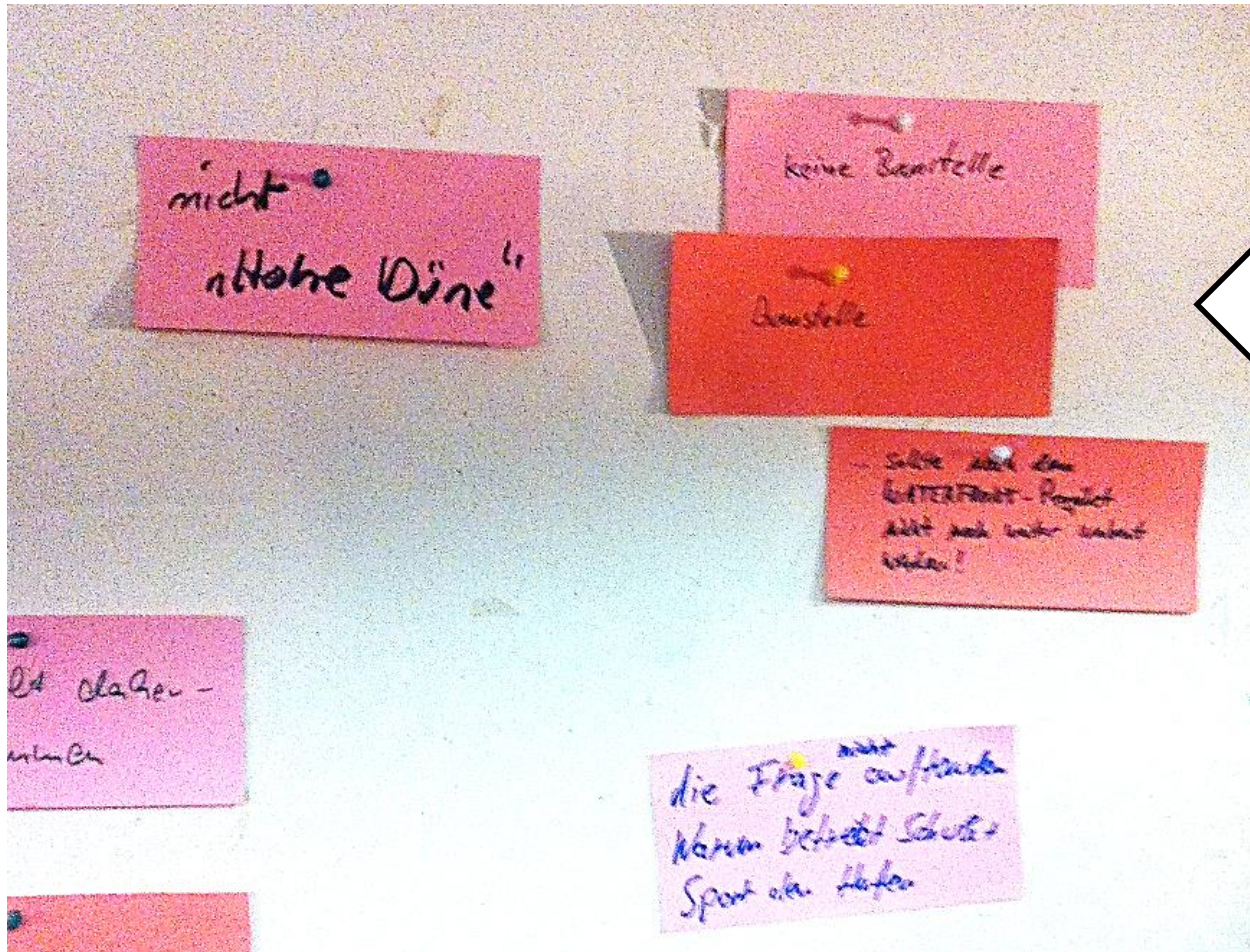 nicht
„Hohe Düne“
keine Baustelle
Baustelle
... sollte nach dem
WATERFRONT-Projekt
nicht noch weiter
werden!
daher-
die Frage nicht auftauchen
Warum betreibt
Sport den Hafen